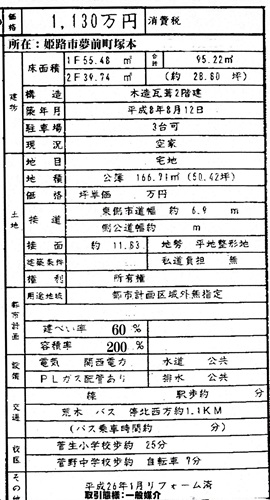 価格 1,130万円 消費税
所在：姫路市夢前町塚本
建物 床面積 1F55.48 ㎡ 合計 95.22㎡
2F39.74 ㎡ (約 28.80 坪)
構造 木造瓦葺2階建
築年月 平成8年8月12日
駐車場 3台可
現況 空家
土地 地目 宅地
地積 公簿 166.71㎡ (50.42坪)
価格 坪単価 万円
接道 東側市道幅 約 6.9 m
側公道幅約 m
接面 約 11.83 地勢 平地整形地
建築条件 私道負担 無
権利 所有権
用途地域 都市計画区域外無指定
都市計画
建ぺい率 60 %
容積率 200 %
設備 電気 関西電力 水道 公共
PLガス配管あり 排水 公共
交通 線 駅歩約 分
荒木 バス 停北西方約1.1KM
(バス乗車時間約 分)
校区 菅生小学校歩約 25分
菅野中学校歩約 自転車 7分
その他 平成26年1月リフォーム済
取引態様：一般媒介